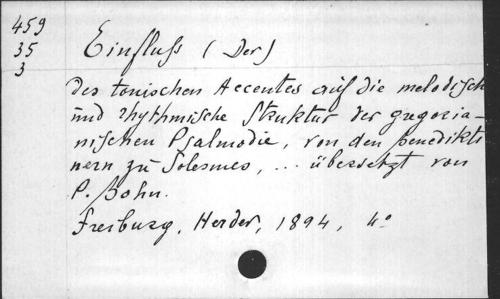 459
35
3
Einfluss (Der)
des tonischen Accentes auf die melodisch
und rhythmische Struktur der gregoria-
nischen Psalmodie, von den benedikti
nern zu Solesmes, ... übersetzt von
P. Bohn.
Freiburg, Herder, 1894, 4º